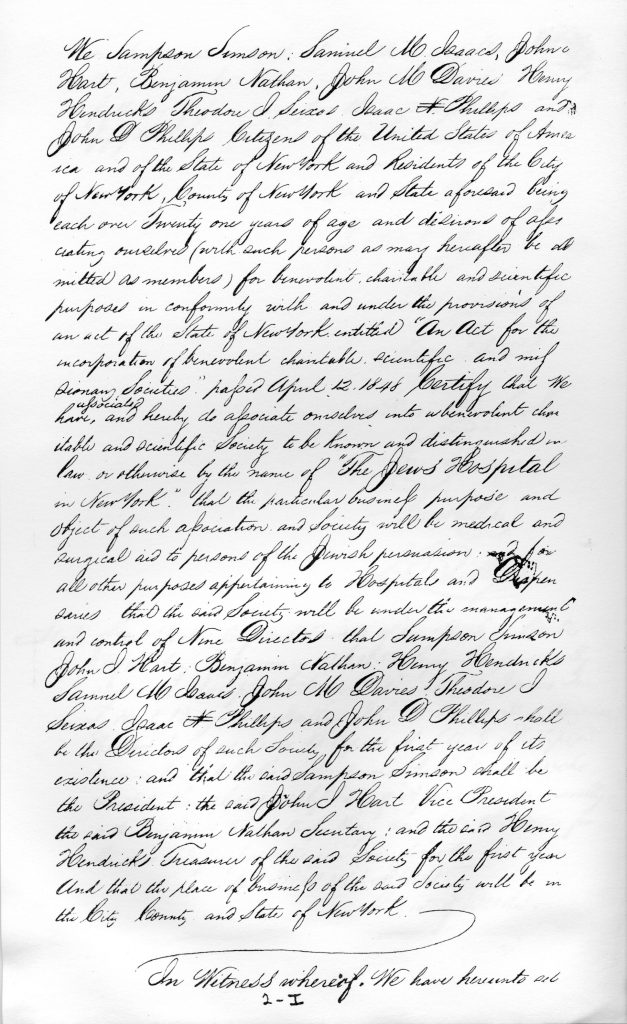 We Sampson Simson, Samuel M Isaacs, John I
Hart, Benjamin Nathan, John M Davies Henry
Hendricks Theodore J Seixas Isaac N Phillips and
John D Phillips Citizens of the United States of Ame
rica and of the State of New York and Residents of the City
of New York, County of New York and State aforesaid being
each over Twenty one years of age and desirous of asso
ciating ourselves (with such persons as may hereafter be ad
mitted as members) for benevolent, charitable and scientific
purposes in conformity with and under the provisions of
an act of the State of New York entitled "An Act for the
incorporation of benevolent charitable scientific and mis
sionary Societies" passed April 12. 1848 Certify that We
associated
have, and hereby do associate ourselves into a benevolent char
itable and scientific Society to be known and distinguished in
law or otherwise by the name of "The Jews' Hospital
in New York." that the particular business purpose and
object of such association and society will be medical and
surgical aid to persons of the Jewish persuasion: and for
all other purposes appertaining to Hospitals and Dispen
saries that the said Society will be under the management
and control of Nine Directors that Sampson Simson
John I. Hart, Benjamin Nathan, Henry Hendricks
Samuel M Isaacs, John M Davies, Theodore J
Seixas, Isaac N Phillips and John D Phillips shall
be the Directors of such Society for the first year of its
existence: and that the said Sampson Simson shall be
the President: the said John I Hart Vice President
the said Benjamin Nathan Secretary: and the said Henry
Hendricks Treasurer of the said Society for the first year
And that the place of business of the said Society will be in
the City County and State of New York.
In Witness whereof. We have hereunto set
2-I